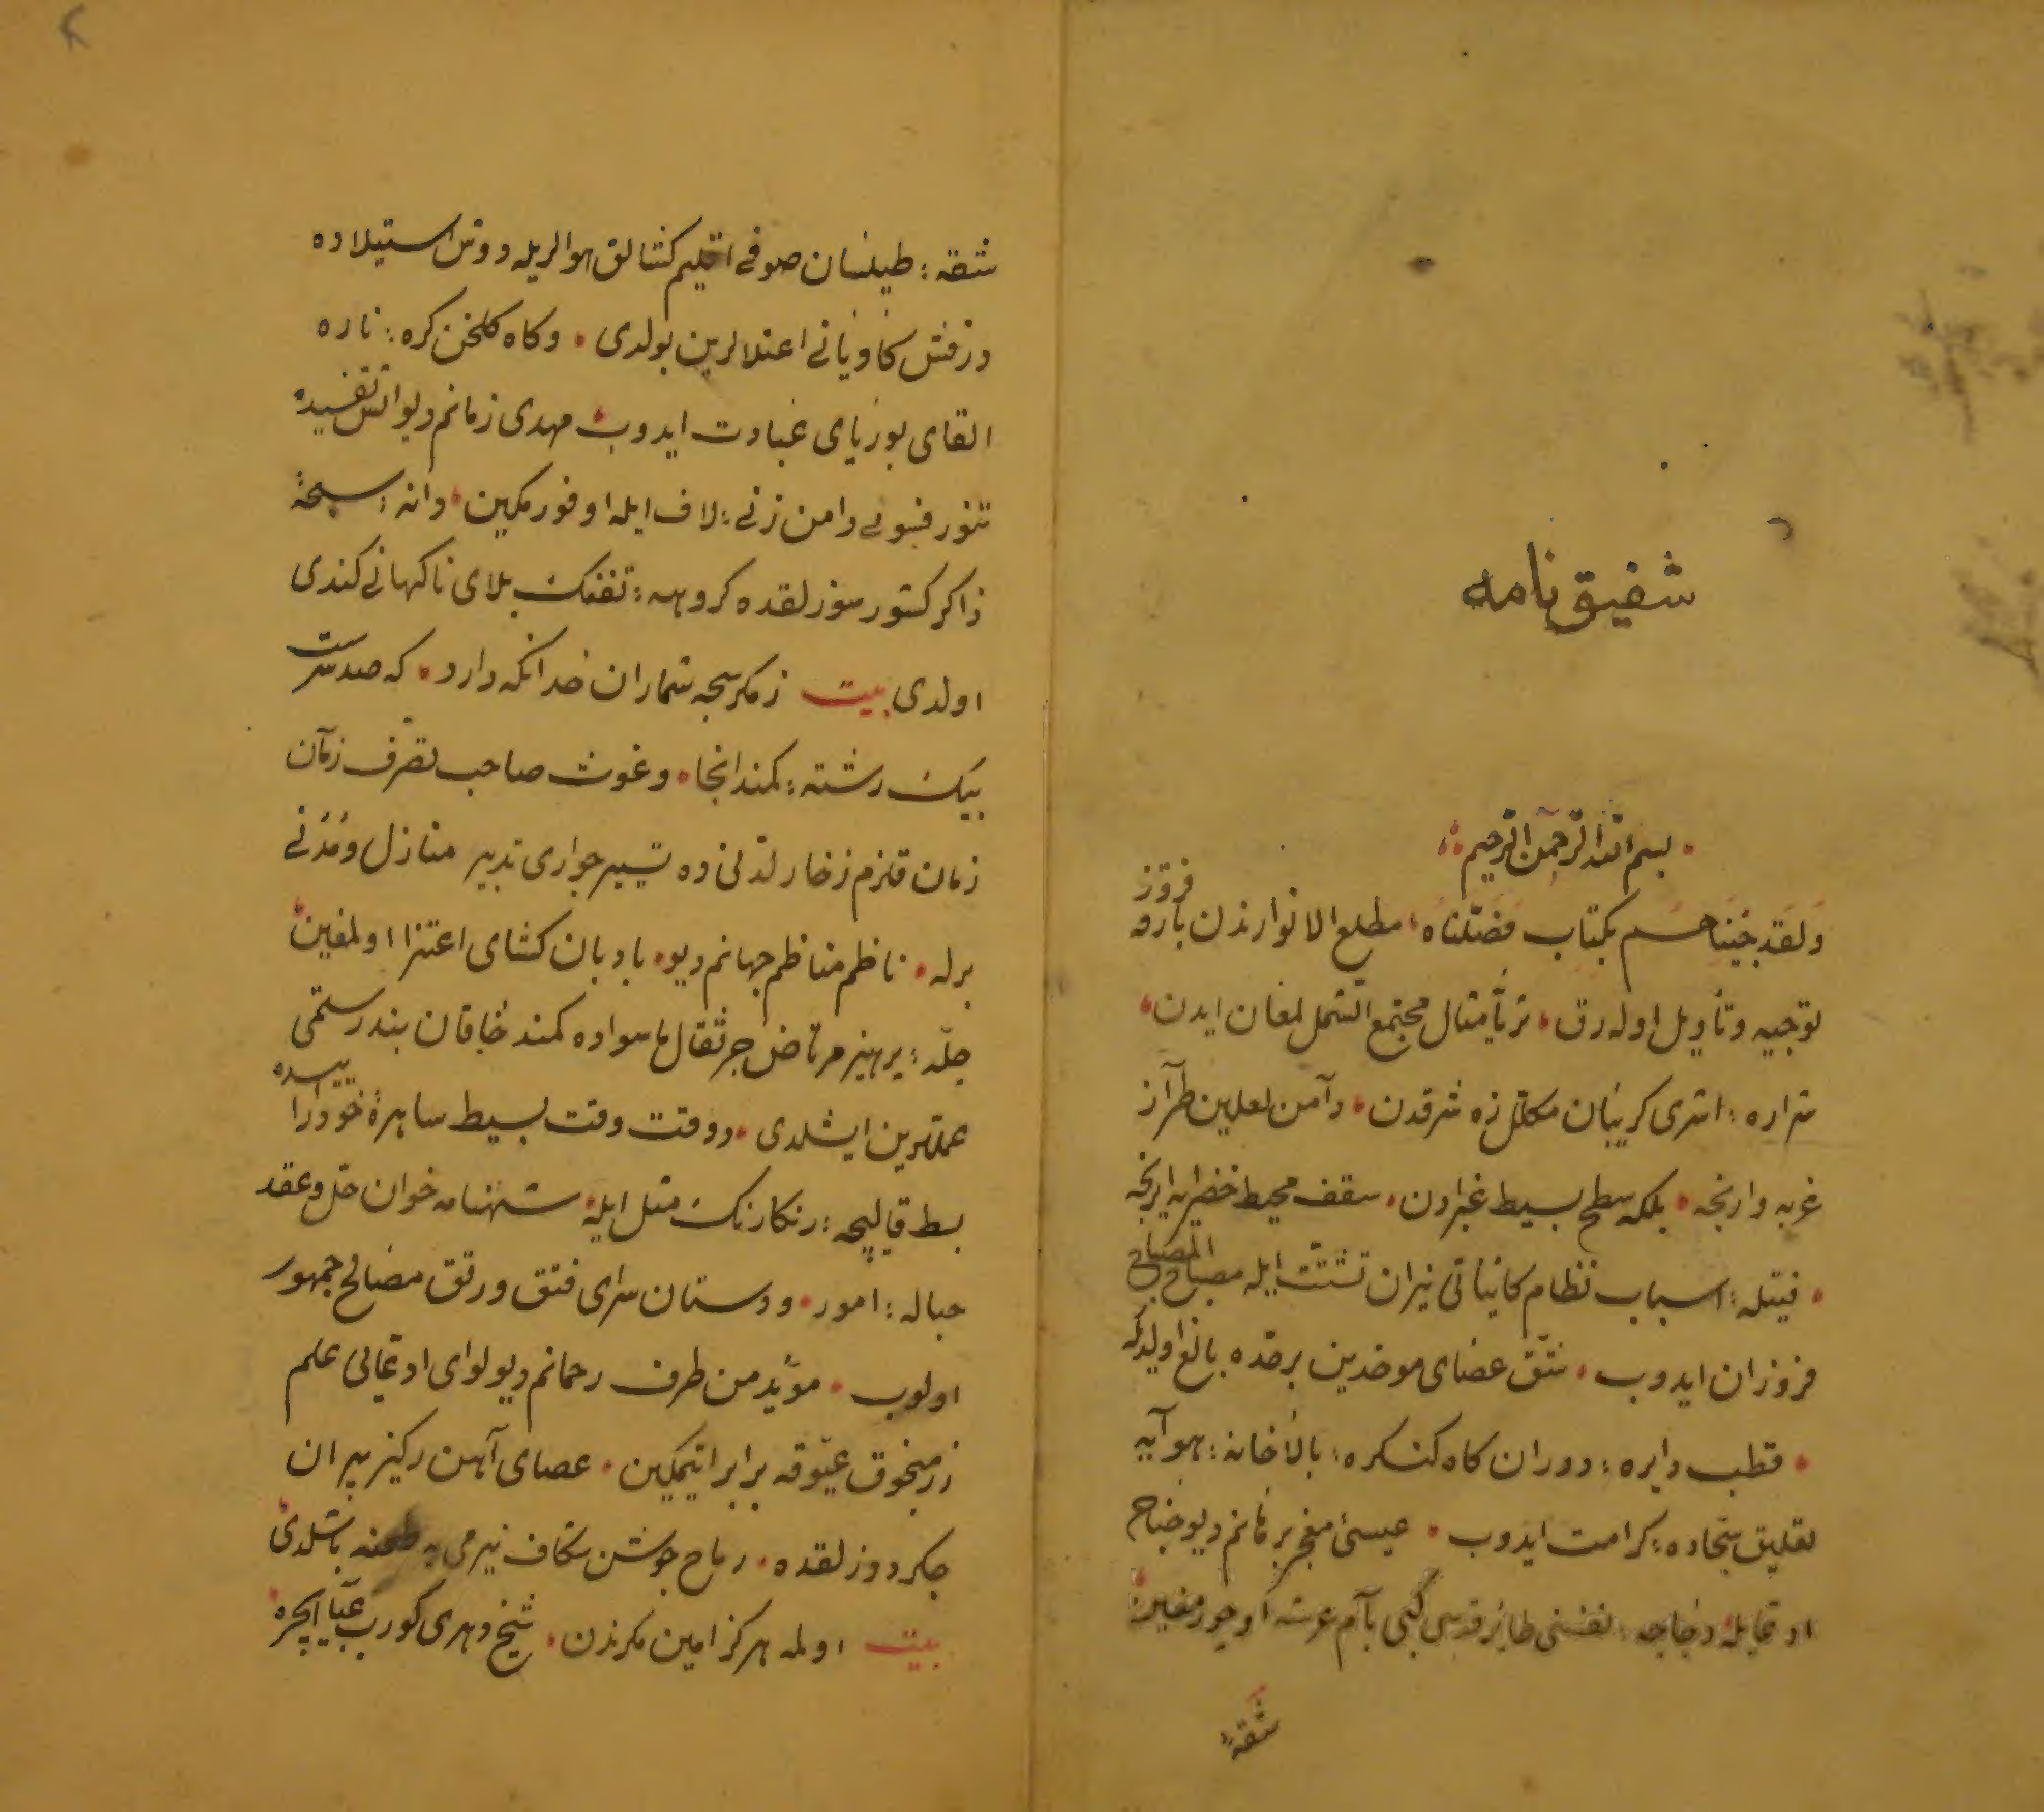 شفیق نامه
بسم الله الرحمن الرحیم
ولقد جئناهم بكتاب فصلناه مطلع الانوارندن بارقه فروز
توجیه وتأویل اوله رق ثریا مثال مجتمع الشمل لمعان ایدن
شراره اشری کریبان مکلل زه شرقدن دامن لعلین طراز
غربه وارنجه بلکه سطح بسیط غبرادن سقف محیط خضرایه ایرنجه
فتیله اسباب نظام کائناتی نیران تشتت ایله مصباح المصباح
فروزان ایدوب شق عصای موحدین برحده بالغ اولدیکه
قطب دایره دوران کاه کنکره بالاخانه هوایه
تعلیق سجاده کرامت ایدوب عیسئ معجز برهانم دیو جناح
ادعایله خفاجه نفسنی طایر قدسی کبی بام عرشه اوچورمغین
شقه
شقه طیلسان صوفی اقلیم کشالق هوالریله دوش استیلاده
درفش کاویانی اعتلالرین بولدی وکاه کلخن کره ناره
القای بوریای عبادت ایدوب مهدی زمانم دیو آتش تفسیده
تنور فسونی دامن زنی لاف ایله اوفورمکین دانه سبحه
ذاکر کشور سوزلقده کروهه تفنک بلای ناکهانی کندی
اولدی بیت زمکر سبحه شماران خدا نکه دارد که صد سرست
بیک رشته کمند انجا وغوث صاحب تصرف زمان
زمان قلزم زخار لدنی ده تسییر جواری تدبیر منازل ومدنی
برله ناظم مناظم جهانم دیو بادبان کشای اعتزا اولمغین
چله پرهیز مرتاض جر ثقال ماسواده کمند خاقان بند رستمی
عملرین ایشلدی دوقت وقت بسیط ساهره خودارا ییسده
بسط قالیچه رنکارنک مثل ایله شهنامه خوان حل وعقد
حباله امور ودستان سرای فتق ورتق مصالح جمهور
اولوب مؤید من طرف رحمانم دیو لوای ادعائی علم
زرمنجوق عیوقه برابر ایتمکین عصای آهن رکیز پیران
جکردوزلقده رماح جوشن شکاف نیرمی یه طعنه باشلدی
بیت اولمه هرکز امین مکرندن شیخ دهری کورب عبا ایچره